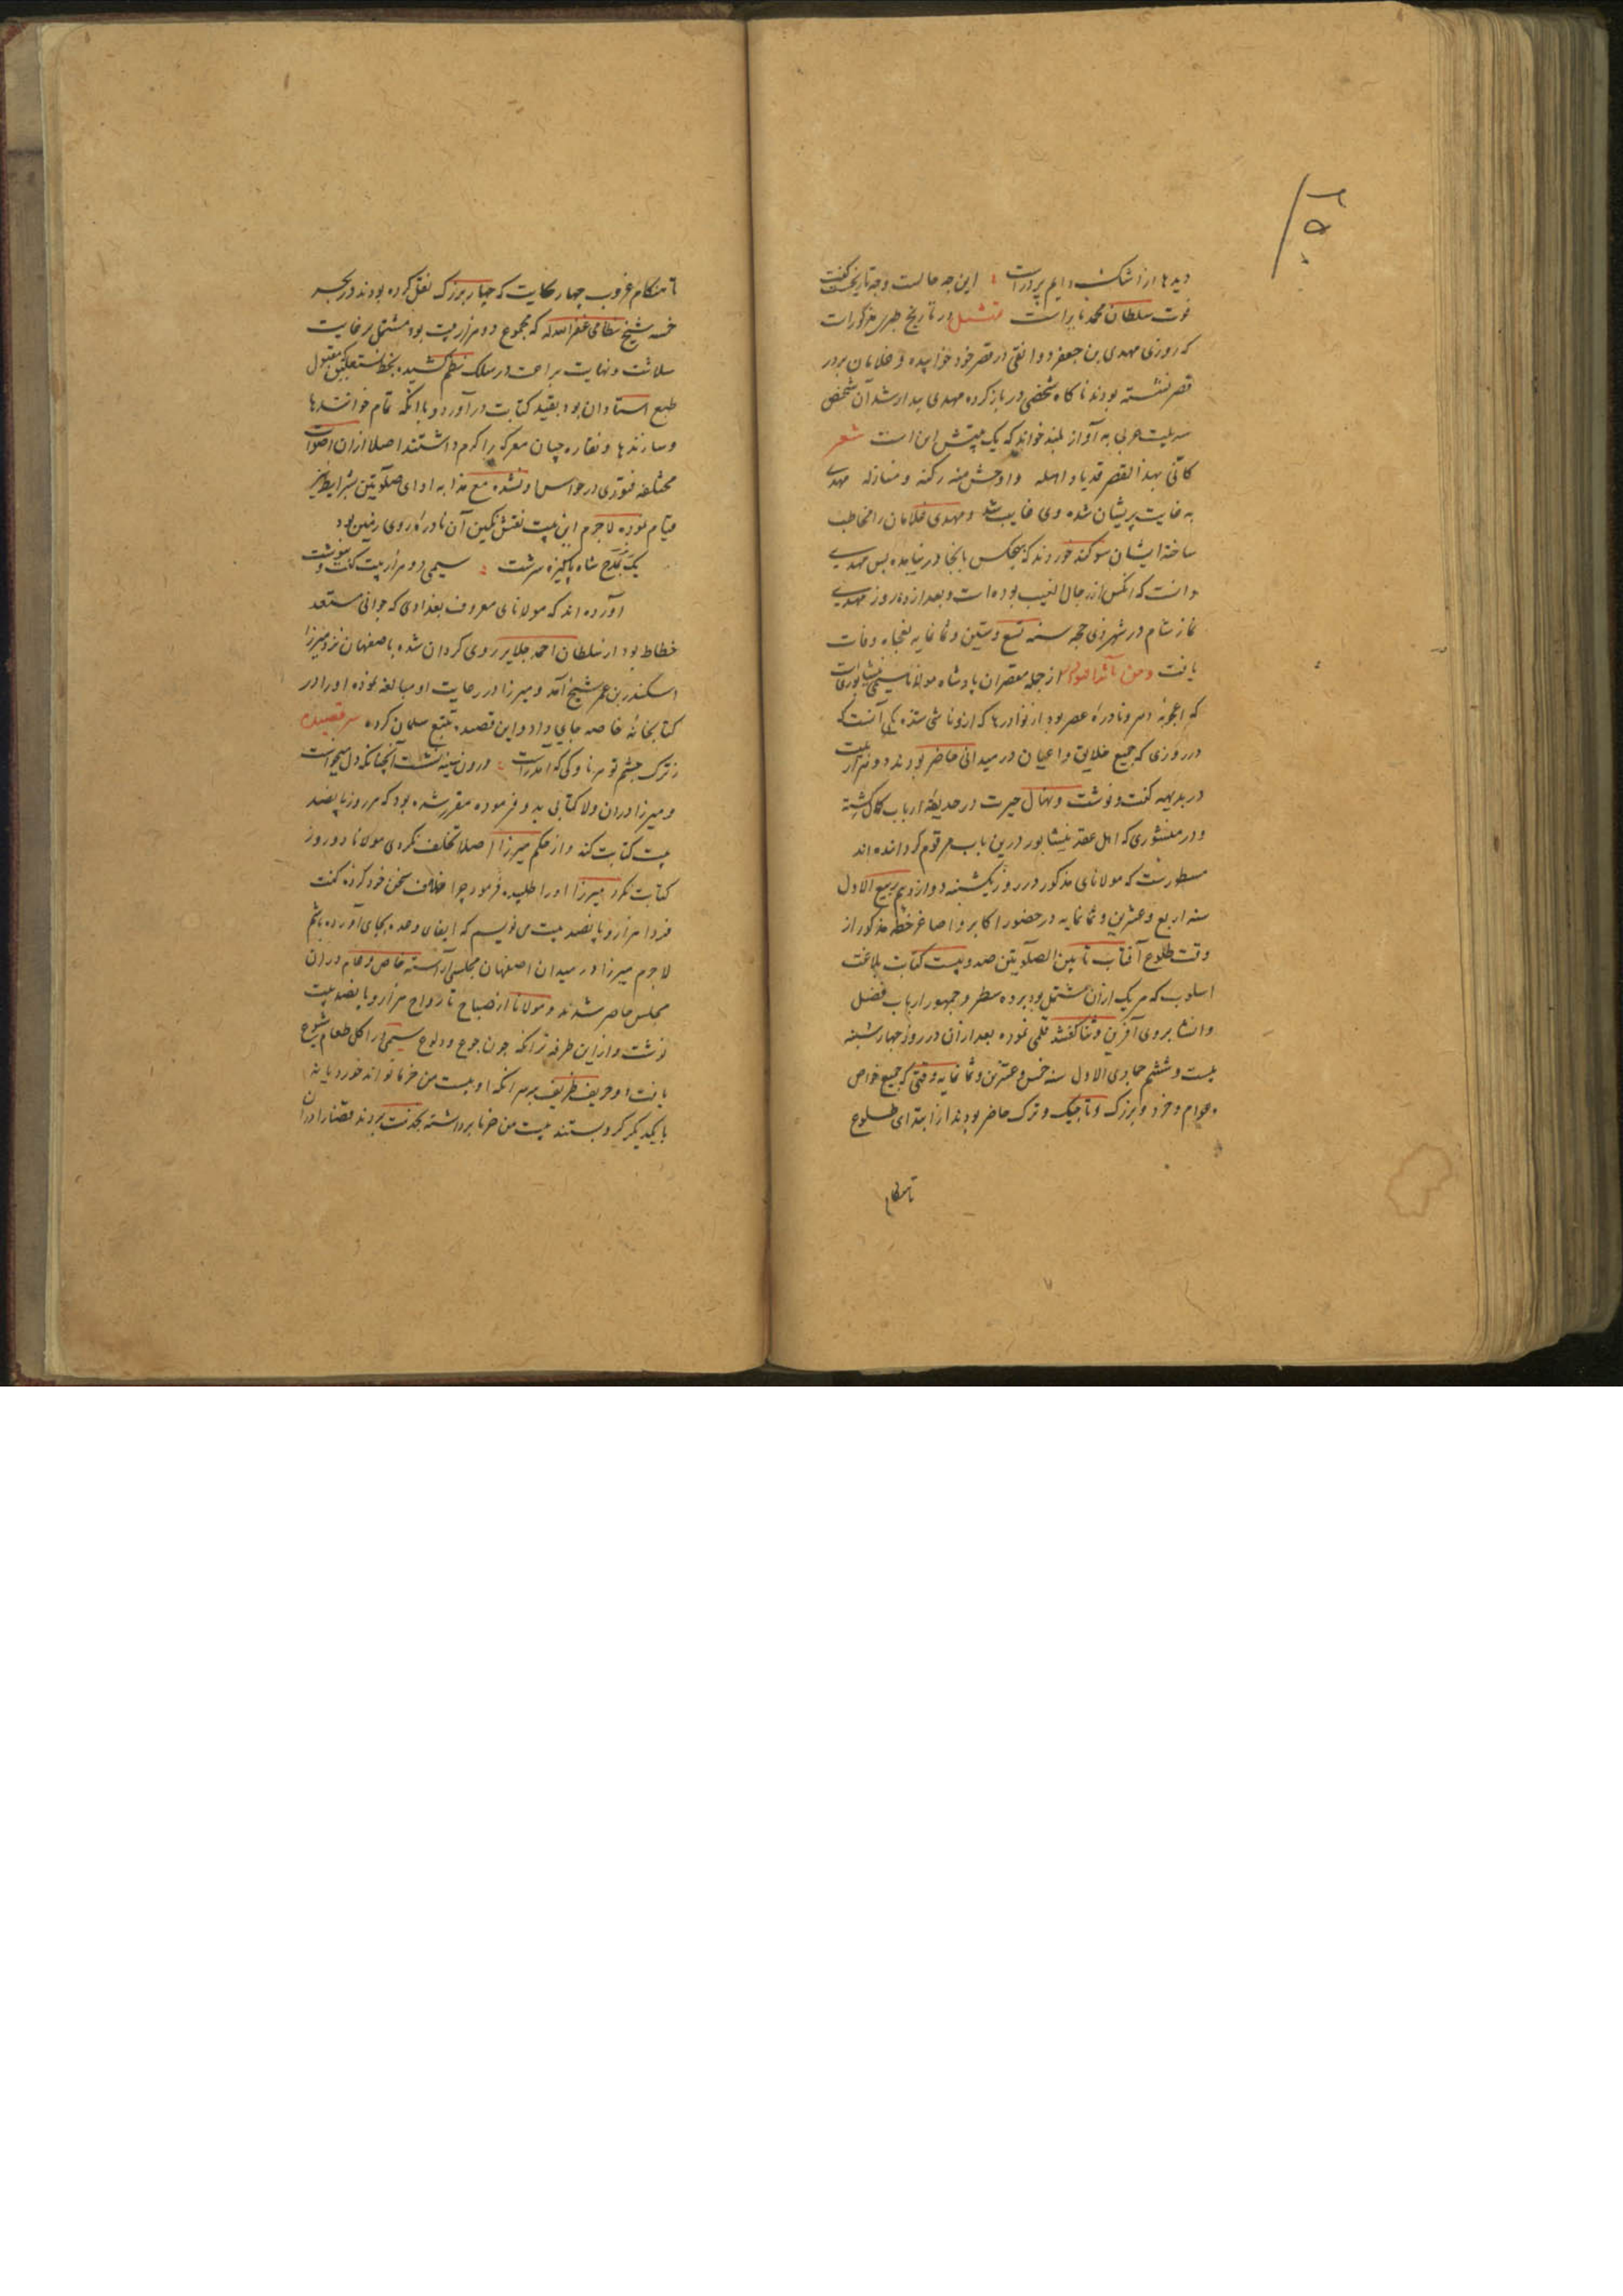 دیدها از اشک دایم پر دراست این چه حالست و چه تاریخست گفت
فوت سلطان محمد بابر است در تاریخ طبری مذکورات
که روزی مهدی بن جعفر دوانقی در قصر خود خوابیده و غلامان بر در
قصر نشسته بودند ناکاه شخصی در باز کرده مهدی بیدار شد آن شخص
سه بیت عربی به آواز بلند خواند که یک بیتش این است شعر
کانی بهذا القصر قد باد اهله و اوحش منه رکنه و منازله مهدی
به غایت پریشان شده وی غایب شد و مهدی غلامان را مخاطب
ساخته ایشان سوکند خوردند که هیچکس بانجا در نیامده پس مهدی
دانست که انکس از رجال الغیب بوده است و بعد از ده روز مهدی
نماز شام در شهر ذی حجه سنه تسع و ستین و ثمانمایه بفجاه وفات
یافت از جمله معصران پادشاه مولانا سیمی نیشابوریات
که اعجوبه دهر و نادرهٔ عصر بود از نوادرها که ازو ناشی شده یکی آنست که
در روزی که جمیع خلایق و اعیان در میدانی حاضر بودند دو هزار بیت
در بدیهه کفت و نوشت و نهال حیرت در حدیقهٔ ارباب کمال کشته
و در منشوری که اهل عقد نیشابور درین باب مرقوم کردانده اند
مسطورست که مولانای مذکور در روز یکشنبه دوازدهم ربیع الاول
سنه اربع و عشرین و ثمانمایه در حضور اکابر و اصاغر خطه مذکور از
وقت طلوع آفتاب تا بین الصلوتین صد و بیست کتابت بلاغت
اسلوب که هر یک ازان مشتمل بود بر ده سطر و جمهور ارباب فضل
و انشا بر وی آفرین و ثنا گفتند قلمی نموده بعد ازان در روز چهارشنبه
بیست و ششم جمادی الاول سنه خمس و عشرین و ثمانمایه وقتی که جمیع خواص
و عوام و خرد و بزرک و تاجیک و ترک حاضر بودند از ابتدای طلوع
تا هنکام
تا هنکام غروب چهار حکایت که چهار بزرک نقل کرده بودند در بحر
خمسه شیخ نظامی غفر الله له که مجموع دو هزار بیت بود مشتمل بر غایت
سلاست و نهایت براعت در سلک نظم کشیده بخط نستعلیق که مقبول
طبع استادان بود بقید کتابت درآورد و با آنکه تمام خوانندها
و سازندها و نقاره چیان معرکه را کرم داشتند اصلا ازان اصوات
مختلفه فتوری در حواس او نشده مع هذا به ادای صلوتین بشرایط نیز
قیام نموده لاجرم این بیت نقش نکین آن نادرهٔ روی زمین بود
یک روز بمدح شاه پاکیزه سرشت سیمی دو هزار بیت کفت و بنوشت
آورده اند که مولانای معروف بغدادی که جوانی مستعد
خطاط بود از سلطان احمد جلایر روی کردان شده باصفهان نزد میرزا
اسکندر بن عمر شیخ آمد و میرزا در رعایت او مبالغه نموده او را در
کتابخانهٔ خاصه جای داد و این قصیده تتبع سلمان کرده سر قصیده
ز ترک چشم تو هر ناوکی که آمد راست درون سینه نشست آنچنانکه دل میخواست
و میرزا دران ولا کتابی بدو فرموده مقرر شده بود که هر روز پانصد
بیت کتابت کند و از حکم میرزا اصلا تخلف نکردی مولانا دو روز
کتابت نکرد میرزا او را طلبیده فرمود چرا خلاف سخن خود کرده کفت
فردا هزار و پانصد بیت می نویسم که ایفای وعده بجای آورده باشم
لاجرم میرزا در میدان اصفهان مجلسی آراسته خاص و عام دران
مجلس حاضر شدند و مولانا از صباح تا رواح هزار و پانصد بیت
نوشت و از این طرفه تر آنکه چون جوع و ولوع سیمی در اکل طعام شیوع
یافت او و حریف ظریف بر سر آنکه او بیست من خرما تواند خورد یا نه
با یکدیکر کرو بستند بیست من خرما برداشته بخدمت بردند قضا را دران